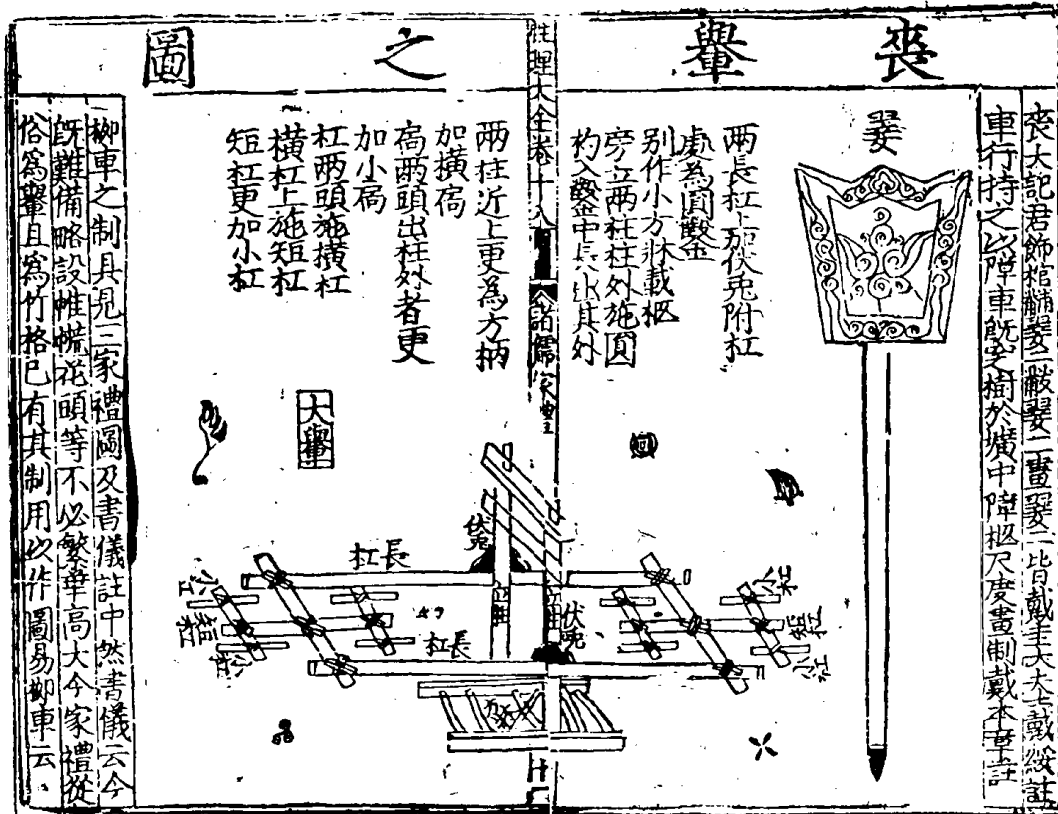 喪轝之圖
喪大記君飾棺黼翣二黻翣二畫翣二皆戴圭大夫士戴綏註
車行持之以障車旣窆樹於壙中障柩尺度畫制載本章註
翣
兩長杠上加伏兎附杠
處爲圓鑿
別作小方牀載柩
旁立兩柱柱外施圓
枘入鑿中長出其外
性理大全卷十八
兩柱近上更爲方枘
加橫扃
扃兩頭出柱外者更
加小扃
杠兩頭施橫杠
橫杠上施短杠
短杠更加小杠
大轝
伏兎
長杠
小杠
短杠
小杠
立柱
立柱
伏兎
小杠
短杠
小杠
長杠
方牀
柳車之制具見三家禮圖及書儀註中然書儀云今
旣難備略設帷㡆花頭等不必繁華高大今家禮從
俗爲轝且爲竹格已有其制用以作圖易柳車云